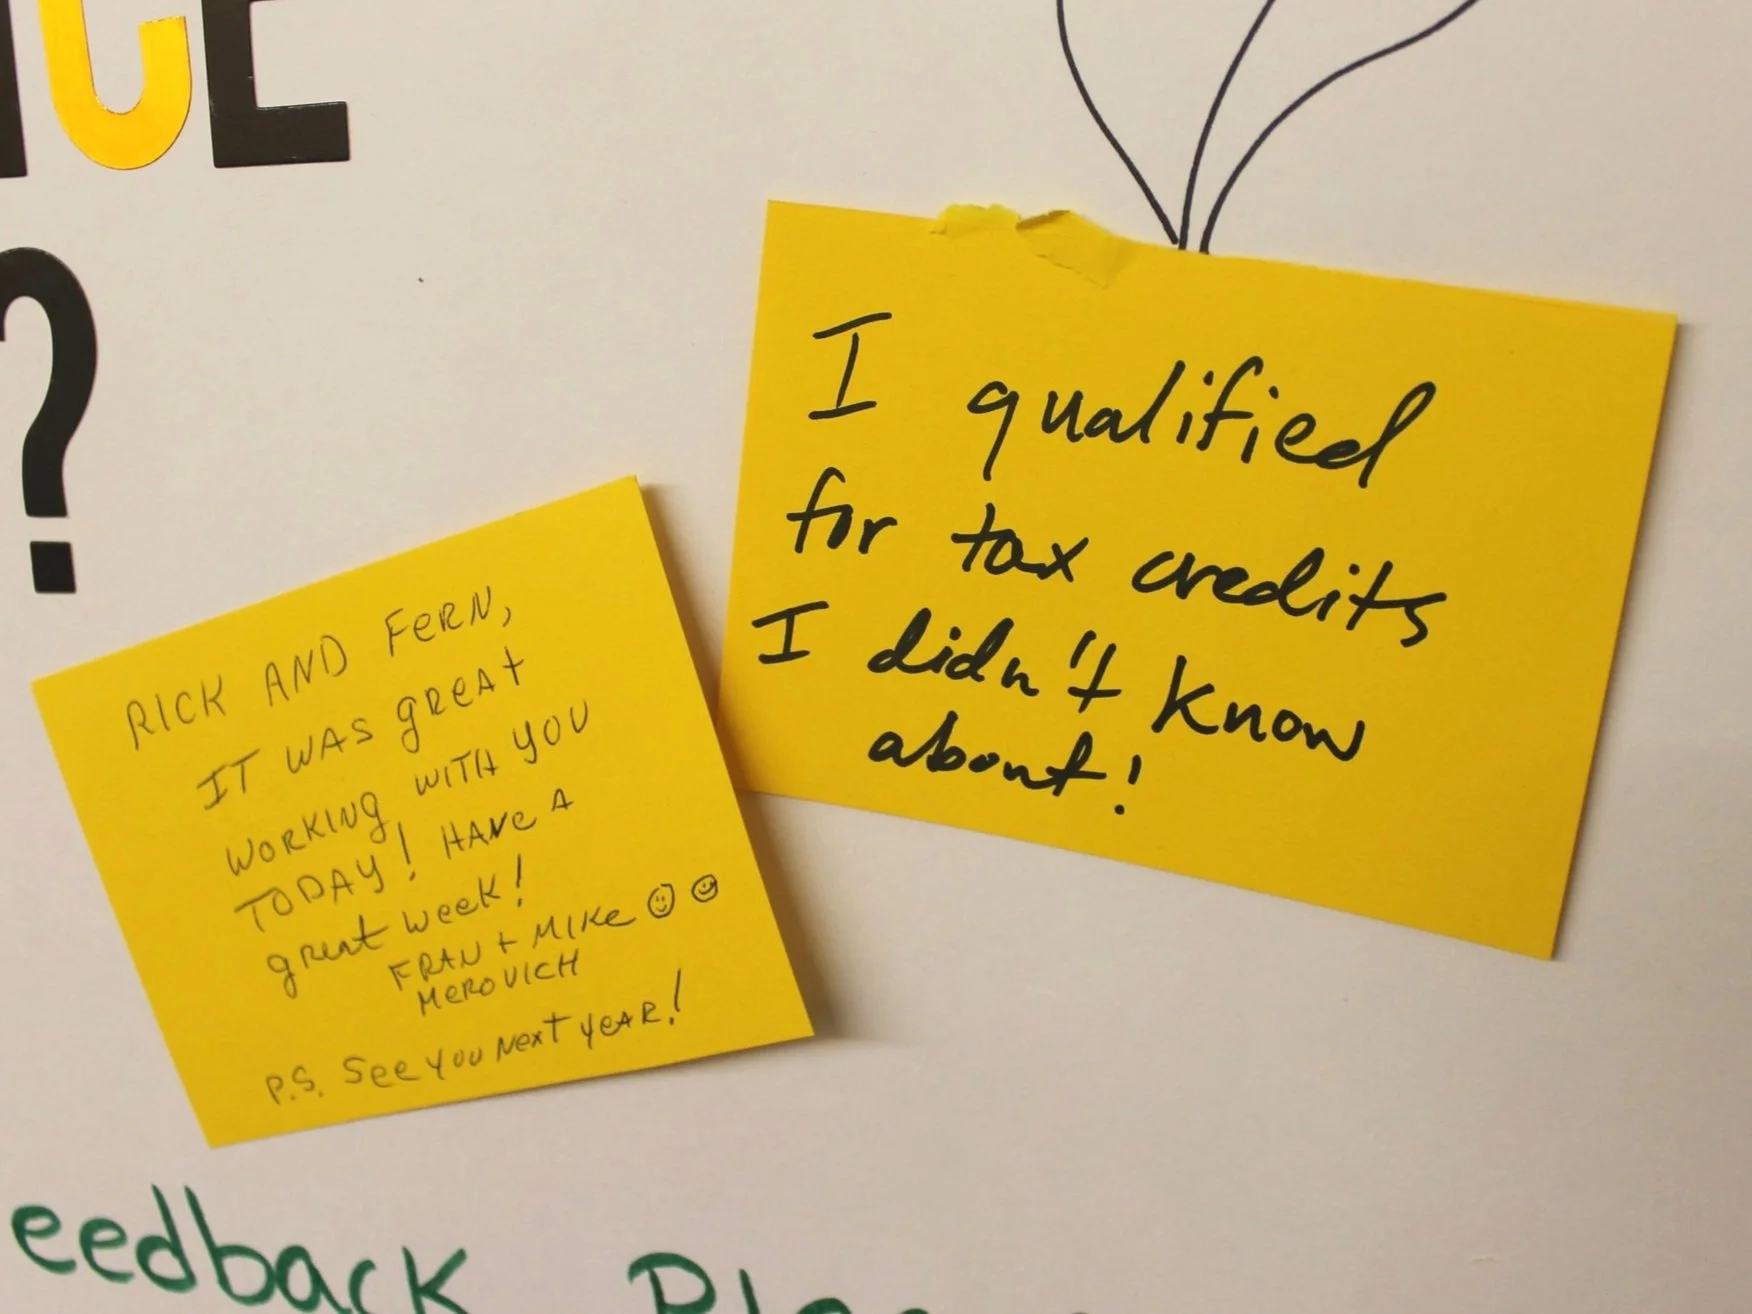 ICE
?
I qualified
for tax credits
I didn't know
about!
RICK AND FERN,
IT WAS GREAT
WORKING WITH YOU
TODAY! HAVE A
great week!
FRAN + MIKE ☺ ☺
MEROVICH
P.S. See you Next year!
eedback